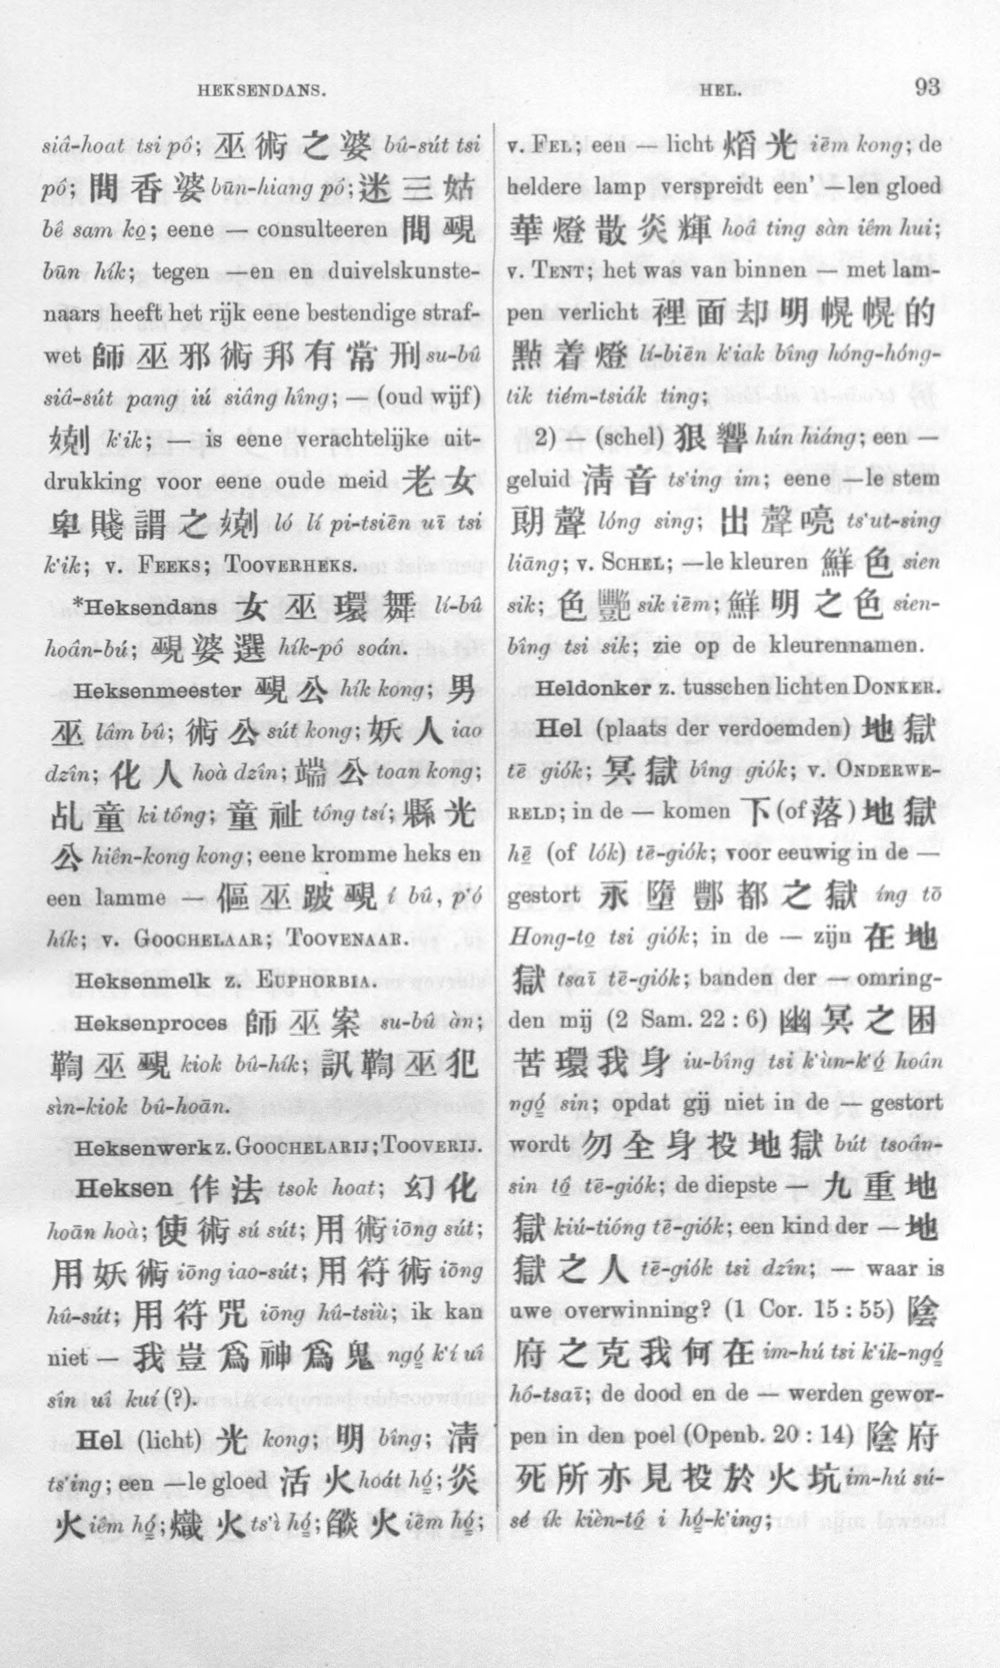 HEKSENDANS.
HEL.
93
siâ-hoat tsi pô; 巫術之婆 bû-sút tsi
pô; 問香婆 būn-hiang pô; 迷三姑
bê sam ko̱; eene — consulteeren 問覡
būn hík; tegen —en en duivelskunste-
naars heeft het rijk eene bestendige straf-
wet 師巫邪術邦有常刑 su-bû
siâ-sút pang iú siâng hîng; — (oud wijf)
k'ik; — is eene verachtelijke uit-
drukking voor eene oude meid 老女
卑賤謂之 ló lí pi-tsiēn uī tsi
k'ik; v. FEEKS; TOOVERHEKS.
*Heksendans 女巫環舞 lí-bû
hoân-bú; 覡婆選 hík-pô soán.
Heksenmeester 覡公 hík kong; 男
巫 lâm bû; 術公 sút kong; 妖人 iao
dzîn; 化人 hoà dzîn; 端公 toan kong;
乩童 ki tông; 童祉 tông tsí; 縣光
公 hiên-kong kong; eene kromme heks en
een lamme — 傴巫跛覡 í bû, p'ó
hík; v. GOOCHELAAR; TOOVENAAR.
Heksenmelk z. EUPHORBIA.
Heksenproces 師巫案 su-bû àn;
鞫巫覡 kiok bû-hík; 訊鞫巫犯
sìn-kiok bû-hoān.
Heksenwerk z. GOOCHELARIJ; TOOVERIJ.
Heksen 作法 tsok hoat; 幻化
hoān hoà; 使術 sú sút; 用術 iōng sút;
用妖術 iōng iao-sút; 用符術 iōng
hû-sút; 用符咒 iōng hû-tsiù; ik kan
niet — 我豈爲神爲鬼 ngó̱ k'í uî
sîn uî kuí (?).
Hel (licht) 光 kong; 明 bîng; 清
ts'ing; een —le gloed 活火 hoát hó̱; 炎
火 iêm hó̱; 熾火 ts'ì hó̱; 燄火 iēm hó̱;
v. FEL; een — licht 熖光 iēm kong; de
heldere lamp verspreidt een' —len gloed
華燈散炎輝 hoâ ting sàn iêm hui;
v. TENT; het was van binnen — met lam-
pen verlicht 裡面却明幌幌的
點着燈 lí-biēn k'iak bîng hóng-hóng-
tik tiém-tsiák ting;
2) — (schel) 狠響 hún hiáng; een —
geluid 清音 ts'ing im; eene —le stem
朗聲 lóng sing; 出聲喨 ts'ut-sing
liāng; v. SCHEL; —le kleuren 鮮色 sien
sik; 色豔 sik iēm; 鮮明之色 sien-
bîng tsi sik; zie op de kleurennamen.
Heldonker z. tusschen licht en DONKER.
Hel (plaats der verdoemden) 地獄
tē giók; 冥獄 bîng giók; v. ONDERWE-
RELD; in de — komen 下 (of 落) 地獄
hē̱ (of lók) tē-giók; voor eeuwig in de —
gestort 永墮酆都之獄 íng tō
Hong-to̱ tsi giók; in de — zijn 在地
獄 tsaī tē-giók; banden der — omring-
den mij (2 Sam. 22 : 6) 幽冥之困
苦環我身 iu-bîng tsi k'ùn-k'ó̱ hoân
ngó̱ sin; opdat gij niet in de — gestort
wordt 勿全身投地獄 bút tsoân-
sin tô̱ tē-giók; de diepste — 九重地
獄 kiú-tióng tē-giók; een kind der — 地
獄之人 tē-giók tsi dzîn; — waar is
uwe overwinning? (1 Cor. 15 : 55) 陰
府之克我何在 im-hú tsi k'ik-ngó̱
hô-tsaī; de dood en de — werden gewor-
pen in den poel (Openb. 20 : 14) 陰府
死所亦見投於火坑 im-hú sú-
sé ík kièn-tô̱ i hó̱-k'ing;